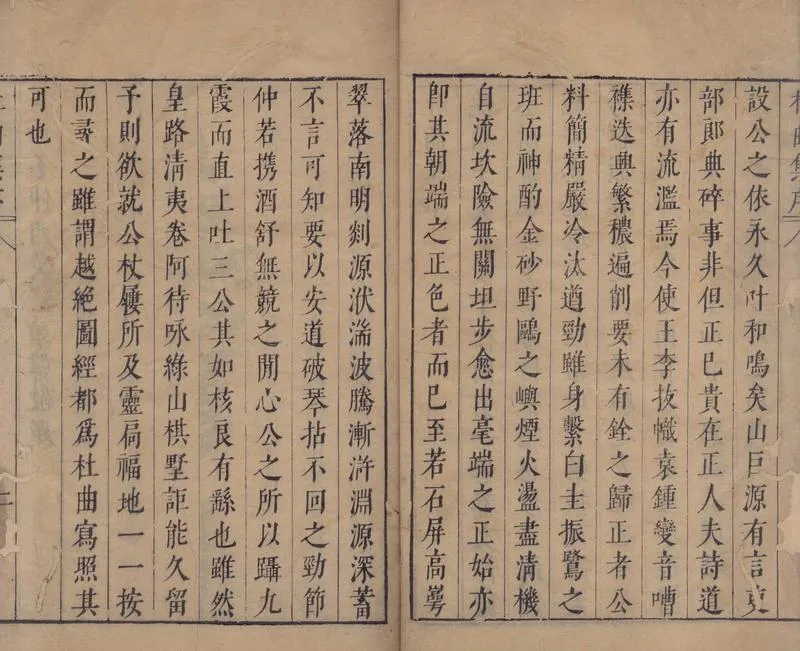 杜曲集序
設公之依永久叶和鳴矣山巨源有言吏
部郎典碎事非但正己貴在正人夫詩道
亦有流濫焉今使王李抜幟袁鍾變音嘈
襍迭興繁穠遍削要未有銓之歸正者公
料簡精嚴冷汰遒勁雖身繫白圭振鷺之
班而神酌金砂野鷗之嶼煙火盪盡清機
自流坎險無關坦步愈出毫端之正始亦
卽其朝端之正色者而已至若石屏高蕚
翠落南明剡源洑湍波騰漸滸淵源深蓄
不言可知要以安道破琴拈不回之勁節
仲若携酒舒無競之閒心公之所以躡九
霞而直上吐三公其如核良有繇也雖然
皇路清夷卷阿待咏綠山棋墅詎能久留
予則欲就公杖屨所及靈扃福地一一按
而尋之雖謂越絶圖經都爲杜曲寫照其
可也
二